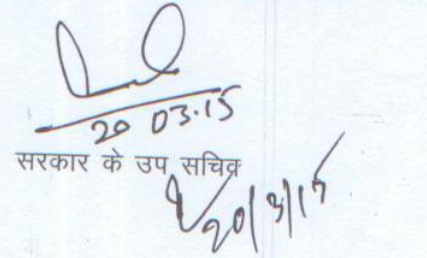 20 03.15
सरकार के उप सचिव
20/3/15